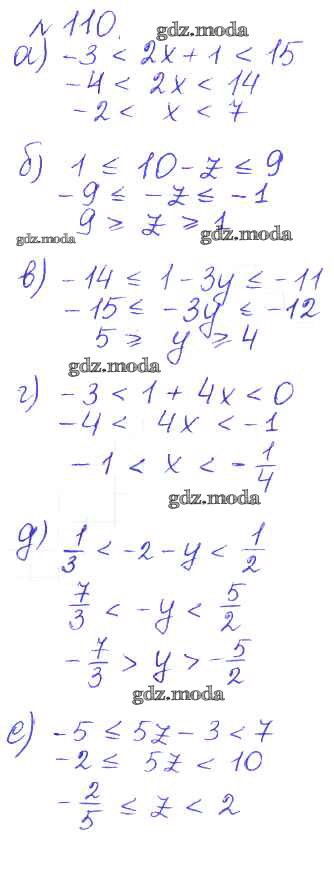 № 110.
gdz.moda
а) -3 < 2x + 1 < 15
-4 < 2x < 14
-2 < x < 7
б) 1 ≤ 10 - z ≤ 9
-9 ≤ -z ≤ -1
9 ≥ z ≥ 1
gdz.moda gdz.moda
в) -14 ≤ 1 - 3y ≤ -11
-15 ≤ -3y ≤ -12
5 ≥ y ≥ 4
gdz.moda
г) -3 < 1 + 4x < 0
-4 < 4x < -1
-1 < x < -1/4
gdz.moda
д) 1/3 < -2 - y < 1/2
7/3 < -y < 5/2
-7/3 > y > -5/2
gdz.moda
е) -5 ≤ 5z - 3 < 7
-2 ≤ 5z < 10
-2/5 ≤ z < 2